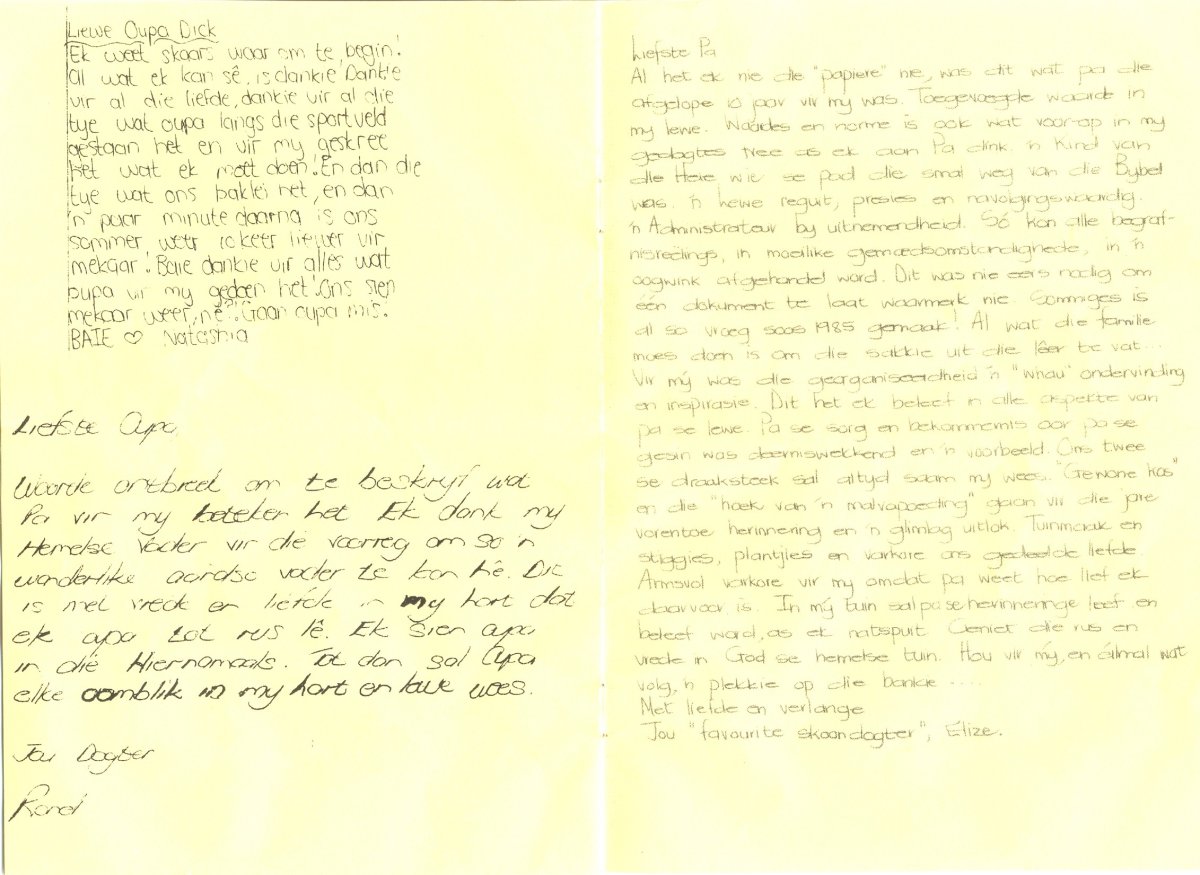 Liewe Oupa Dick
Ek weet skaars waar om te begin!
Al wat ek kan sê, is dankie Dankie
vir al die liefde, dankie vir al die
tye wat oupa langs die sportveld
gestaan het en vir my geskree
het wat ek moet doen! En dan die
tye wat ons baklei het, en dan
'n paar minute daarna is ons
sommer weer 10 keer liewer vir
mekaar! Baie dankie vir alles wat
oupa vir my gedoen het! Ons sien
mekaar weer, nê?! Gaan oupa mis.
BAIE ♡ Natashia
Liefste Oupa
Woorde ontbreek om te beskryf wat
Pa vir my beteken het. Ek dank my
Hemelse Vader vir die voorreg om so 'n
wonderlike aardse vader te kon hê. Dit
is met vrede en liefde in my hart dat
ek oupa tot rus lê. Ek sien oupa
in die Hiernamaals. Tot dan sal Oupa
elke oomblik in my hart en lewe wees.
Jou Dogter
Liefste Pa
Al het ek nie die "papiere" nie, was dit wat pa die
afgelope 10 jaar vir my was. Toegevoegde waarde in
my lewe. Waardes en norme is ook wat voor-op in my
gedagtes tree as ek aan Pa dink. 'n Kind van
die Here, wie se pad die smal weg van die Bybel
was. 'n Lewe reguit, presies en navolgingswaardig.
'n Administrateur by uitnemendheid. Só kon alle begraf-
nisreëlings, in moeilike gemoedsomstandighede, in 'n
oogwink afgehandel word. Dit was nie eers nodig om
één dokument te laat waarmerk nie. Sommiges is
al so vroeg soos 1985 gemaak! Al wat die familie
moes doen is om die sakkie uit die lêer te vat...
Vir mý was die georganiseerdheid 'n "whau" ondervinding
en inspirasie. Dit het ek beleef in alle aspekte van
pa se lewe. Pa se sorg en bekommernis oor pa se
gesin was deerniswekkend en 'n voorbeeld. Ons twee
se draaksteek sal altyd saam my wees. "Gewone kos"
en die "hoek van 'n malvapoeding" gaan vir die jare
vorentoe herinnering en 'n glimlag uitlok. Tuinmaak en
stiggies, plantjies en varkore ons gedeelde liefde.
Armsvol varkore vir my omdat pa weet hoe lief ek
daarvoor is. In mý tuin sal pa se herinneringe leef en
beleef word, as ek natspuit. Geniet die rus en
vrede in God se hemelse tuin. Hou vir mý, en álmal wat
volg, 'n plekkie op die bankie .....
Met liefde en verlange
Jou "favourite skoondogter", Elize.